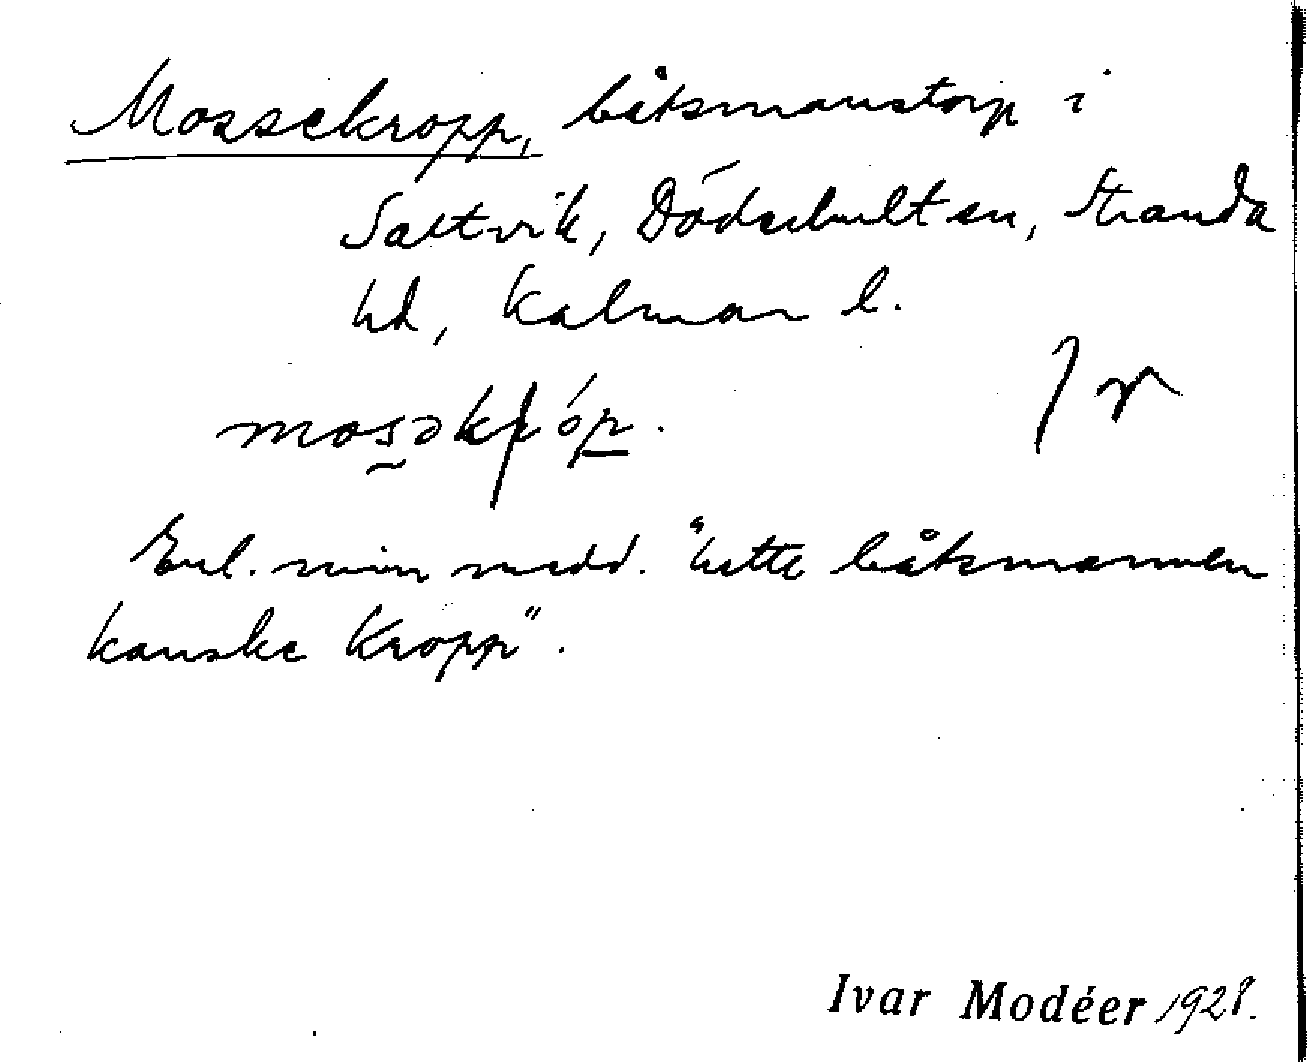 Mossekropp, båtsmanstorp i
Saltvik, Döderhultsn, Stranda
hd, Kalmar l.
mosəkróp.
Enl. min medd. "hette båtsmannen
kanske Kropp".
Ivar Modéer 1928.